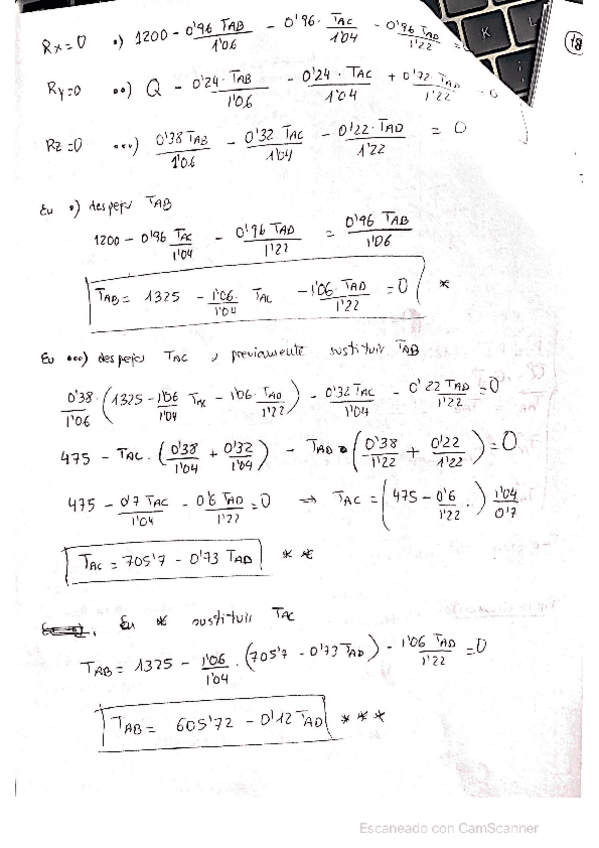 18
Rx=0 •) 1200 - 0'96 TAB/1'06 - 0'96 · TAC/1'04 - 0'96 TAD/1'22 =
Ry=0 ••) Q - 0'24 · TAB/1'06 - 0'24 · TAC/1'04 + 0'72 · TAD/1'22 - 0
Rz=0 •••) 0'38 TAB/1'06 - 0'32 TAC/1'04 - 0'22 · TAD/1'22 = 0
Eu •) despejo TAB
1200 - 0'96 TAC/1'04 - 0'96 TAD/1'22 = 0'96 TAB/1'06
TAB = 1325 - 1'06·/1'04 TAC - 1'06 · TAD/1'22 = 0 *
Eu •••) despejo TAC, previamente sustituir TAB
0'38/1'06 · (1325 - 1'06/1'04 TAC - 1'06 · TAD/1'22) - 0'32 TAC/1'04 - 0'22 TAD/1'22 = 0
475 - TAC · (0'38/1'04 + 0'32/1'04) - TAD · (0'38/1'22 + 0'22/1'22) = 0
475 - 0'7 TAC/1'04 - 0'6 TAD/1'22 = 0 ⇒ TAC = (475 - 0'6/1'22 ·) 1'04/0'7
TAC = 705'7 - 0'73 TAD **
Eu * sustituir TAC
TAB = 1325 - 1'06/1'04 · (705'7 - 0'73 TAD) - 1'06 TAD/1'22 = 0
TAB = 605'72 - 0'12 TAD ***
Escaneado con CamScanner